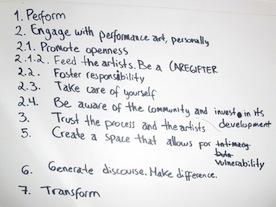 1. Perform
2. Engage with performance art, personally
2.1. Promote openness
2.1.2. Feed the artists. Be a CAREGIFTER
2.2. Foster responsibility
2.3. Take care of yourself
2.4. Be aware of the community and invest in its
development
3. Trust the process and the artists
5. Create a space that allows for intimacy
vulnerability
6. Generate discourse. Make difference.
7. Transform